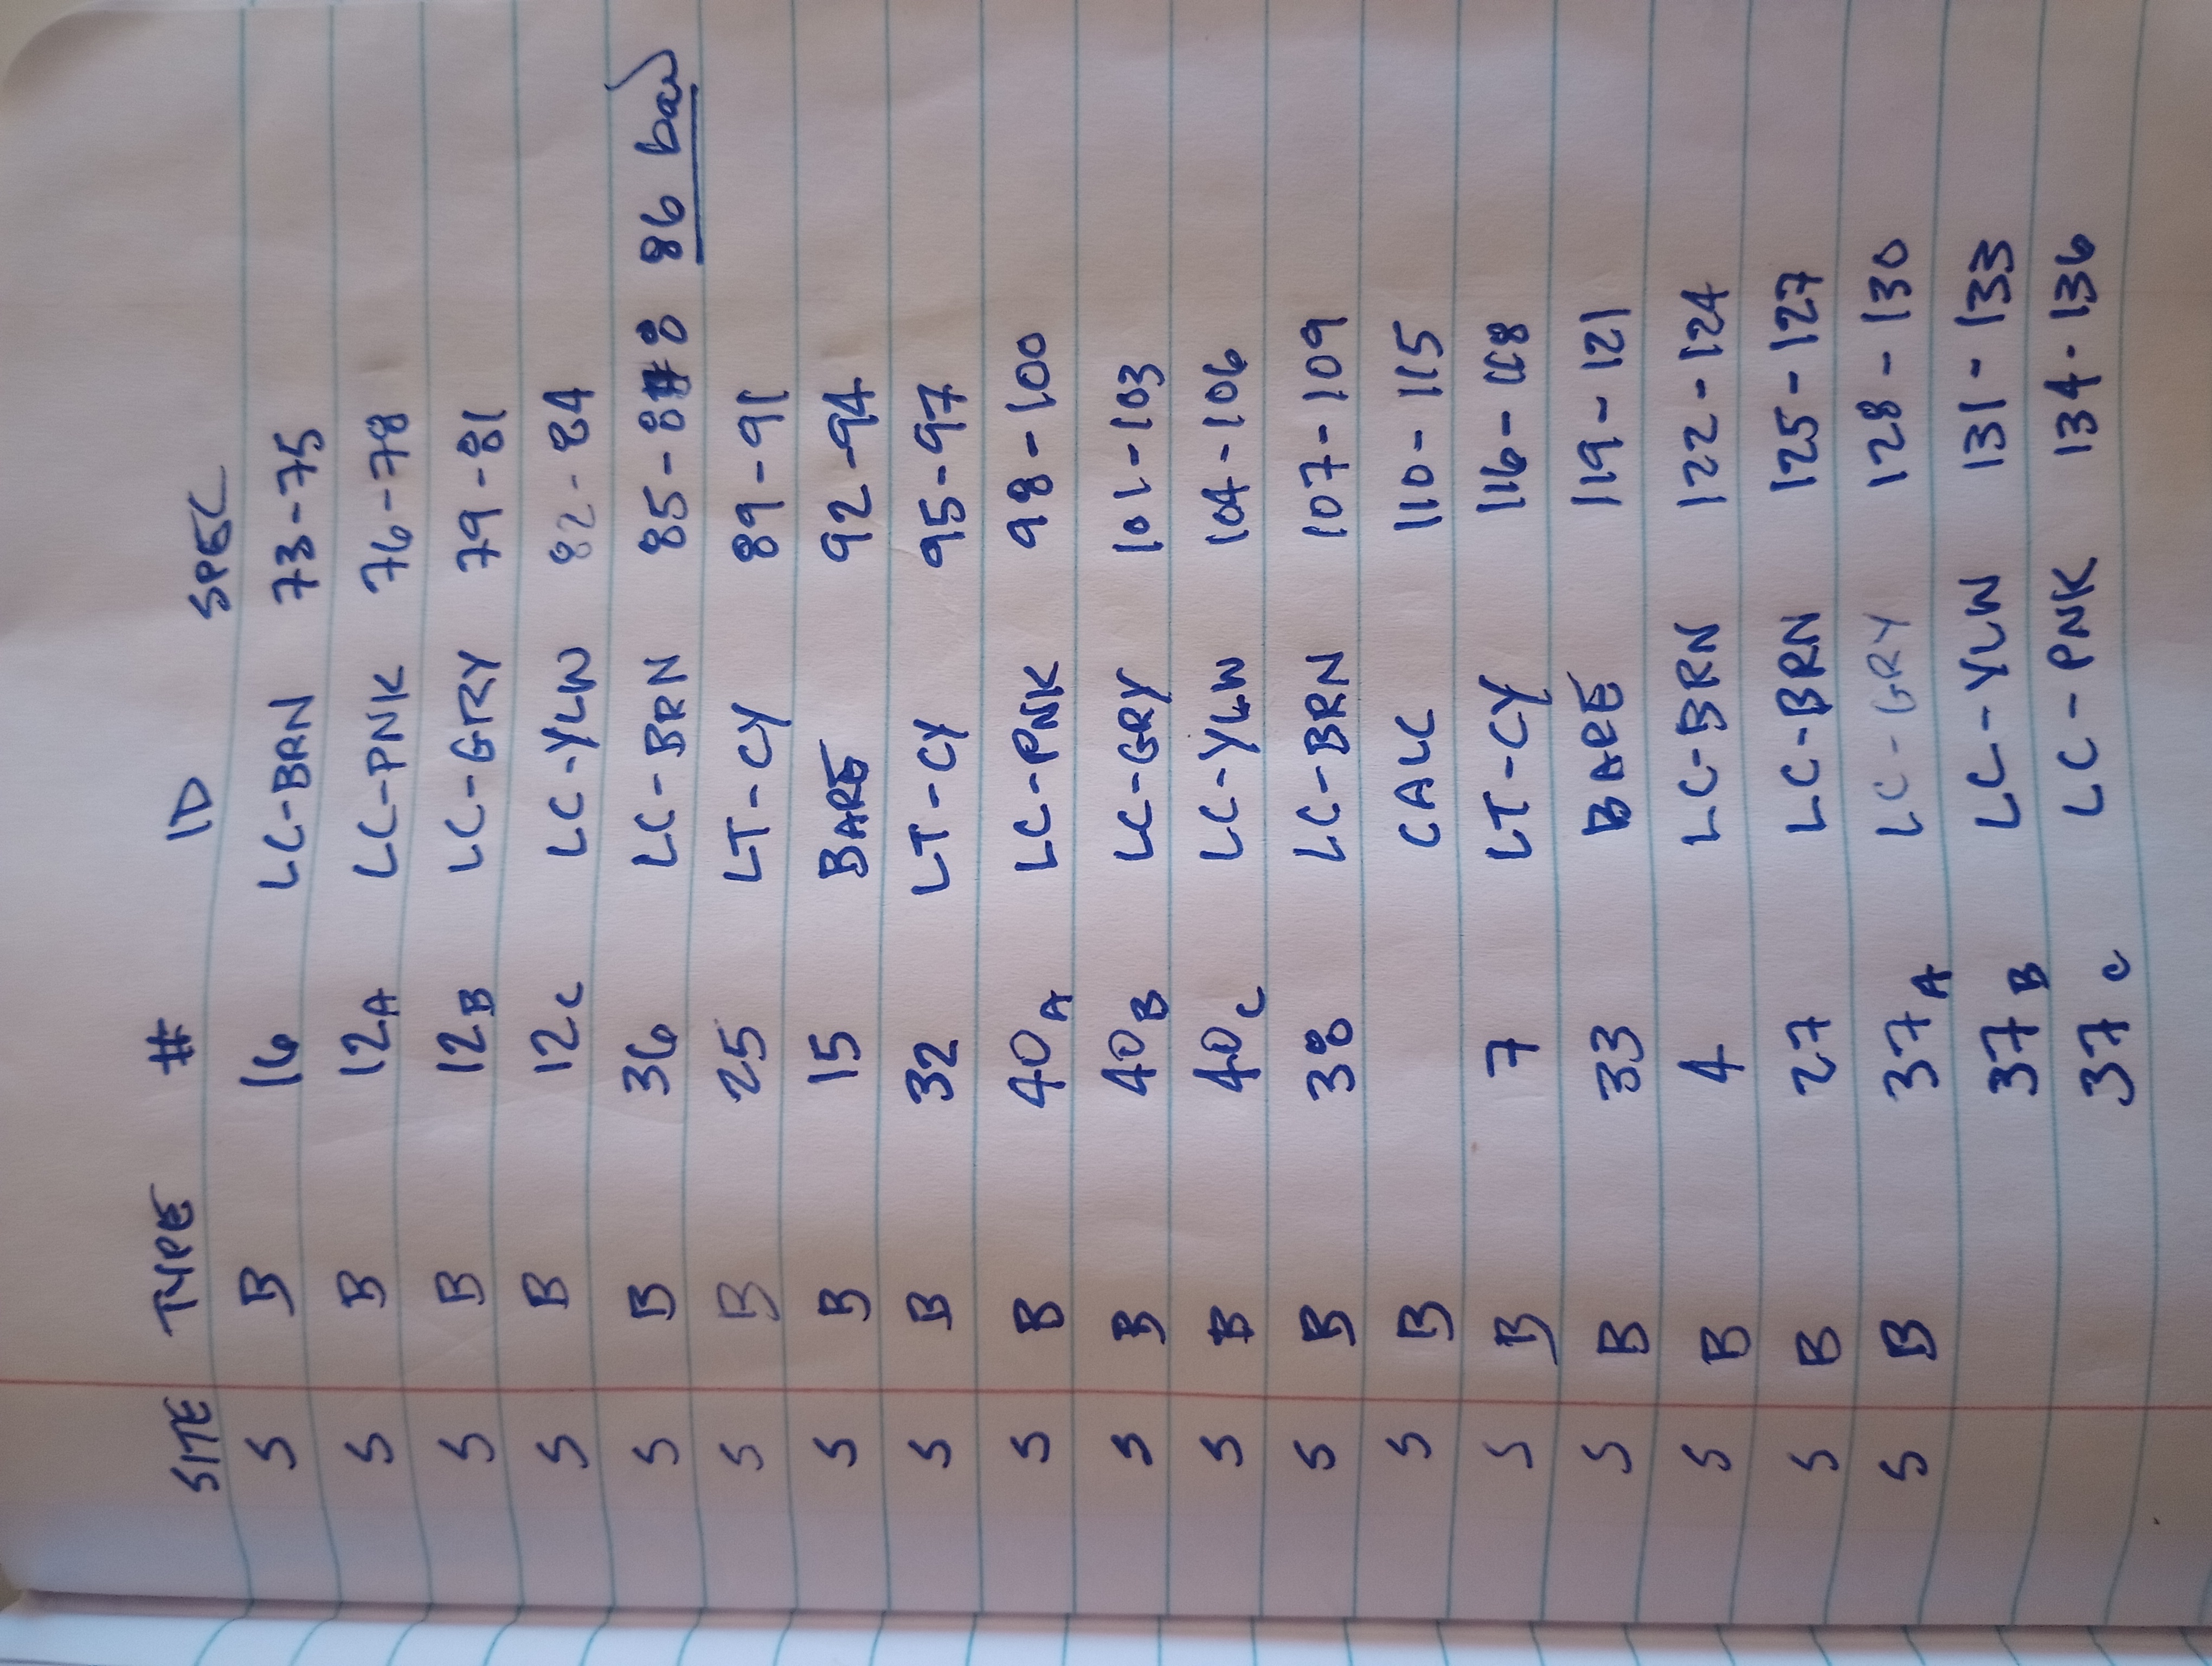 SITE TYPE # ID SPEC
S B 16 LC-BRN 73-75
S B 12A LC-PNK 76-78
S B 12B LC-GRY 79-81
S B 12C LC-YLW 82-84
S B 36 LC-BRN 85-88 86 bad
S B 25 LT-CY 89-91
S B 15 BARE 92-94
S B 32 LT-CY 95-97
S B 40A LC-PNK 98-100
S B 40B LC-GRY 101-103
S B 40C LC-YLW 104-106
S B 38 LC-BRN 107-109
S B CALC 110-115
S B 7 LT-CY 116-118
S B 33 BARE 119-121
S B 4 LC-BRN 122-124
S B 27 LC-BRN 125-127
S B 37A LC-GRY 128-130
37B LC-YLW 131-133
37C LC-PNK 134-136